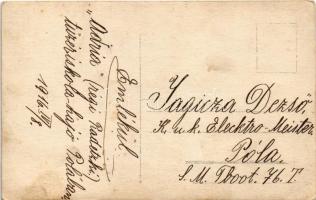 Emlékül
„Adria" (régi Radetzki)
tüzériskola-hajó Polában
1916 III/5.
Jagicza Dezső.
K. u. k. Elecktro-Meister.
Póla.
S. M. Tboot. 76. T.